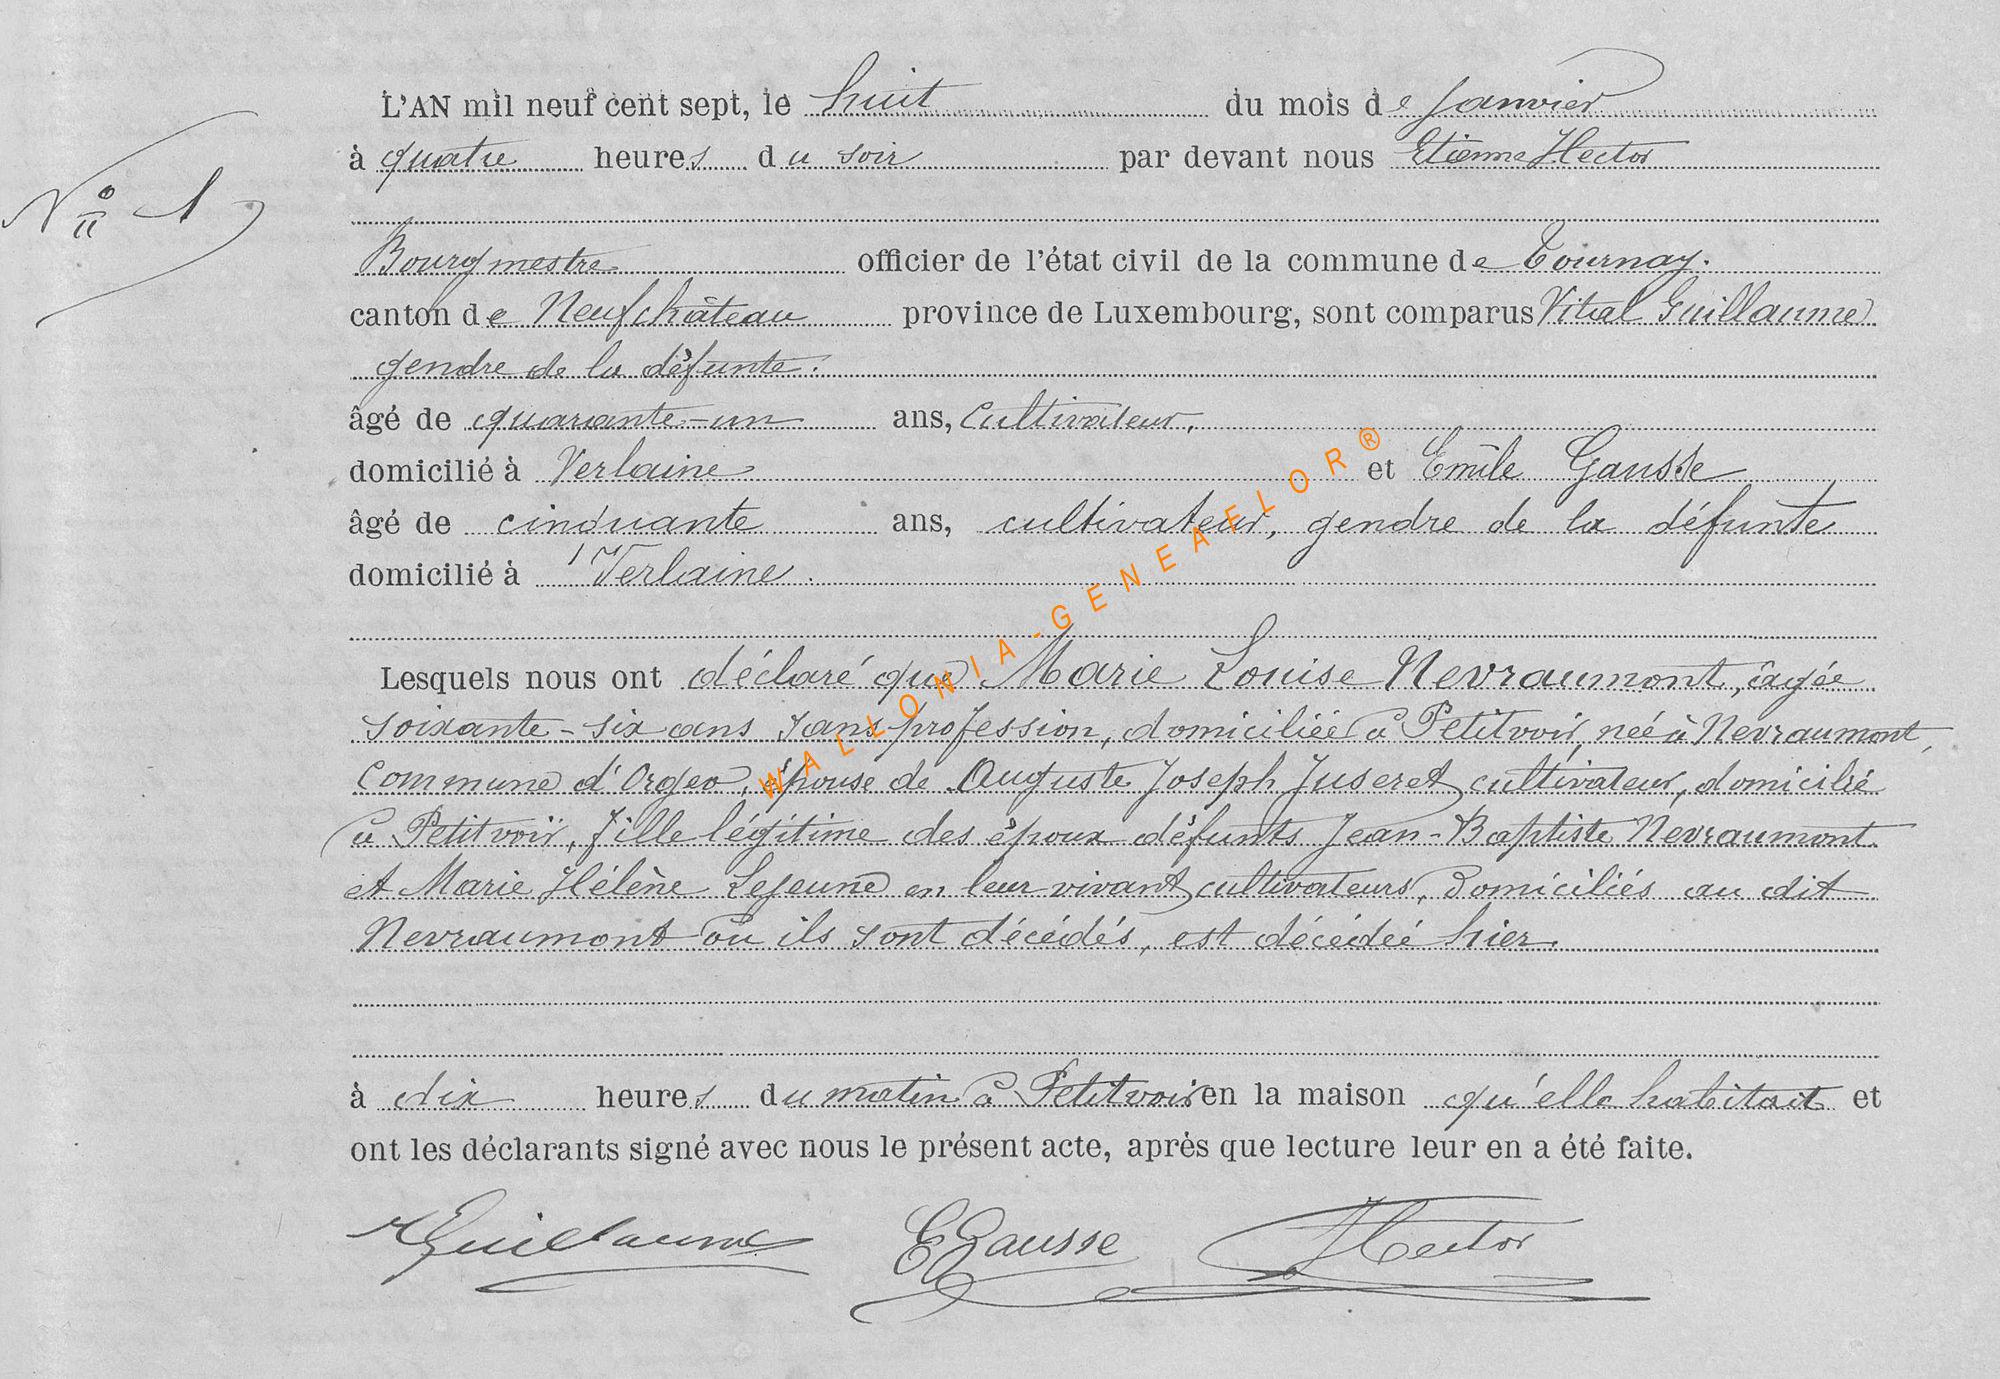 L'AN mil neuf cent sept, le huit du mois de Janvier
à quatre heures du soir par devant nous Etienne Hector
N° 1
Bourgmestre officier de l'état civil de la commune de Tournay.
canton de Neufchâteau province de Luxembourg, sont comparus Vital Guillaume
gendre de la défunte.
âgé de quarante-un ans, Cultivateur,
domicilié à Verlaine et Emile Gausse
âgé de cinquante ans, cultivateur, gendre de la défunte
domicilié à Verlaine.
Lesquels nous ont déclaré que Marie Louise Nevraumont, âgée
soixante-six ans sans profession, domiciliée à Petitvoir, née à Nevraumont,
Commune d'Orgeo, épouse de Auguste Joseph Juseret cultivateur, domicilié
à Petitvoir, fille légitime des époux défunts Jean-Baptiste Nevraumont
et Marie Hélène Lejeune en leur vivant cultivateurs, domiciliés au dit
Nevraumont où ils sont décédés, est décédée hier.
à dix heures du matin à Petitvoir en la maison qu'elle habitait et
ont les déclarants signé avec nous le présent acte, après que lecture leur en a été faite.
VGuillaume EGausse Hector
WALLONIA-GENEAELOR®